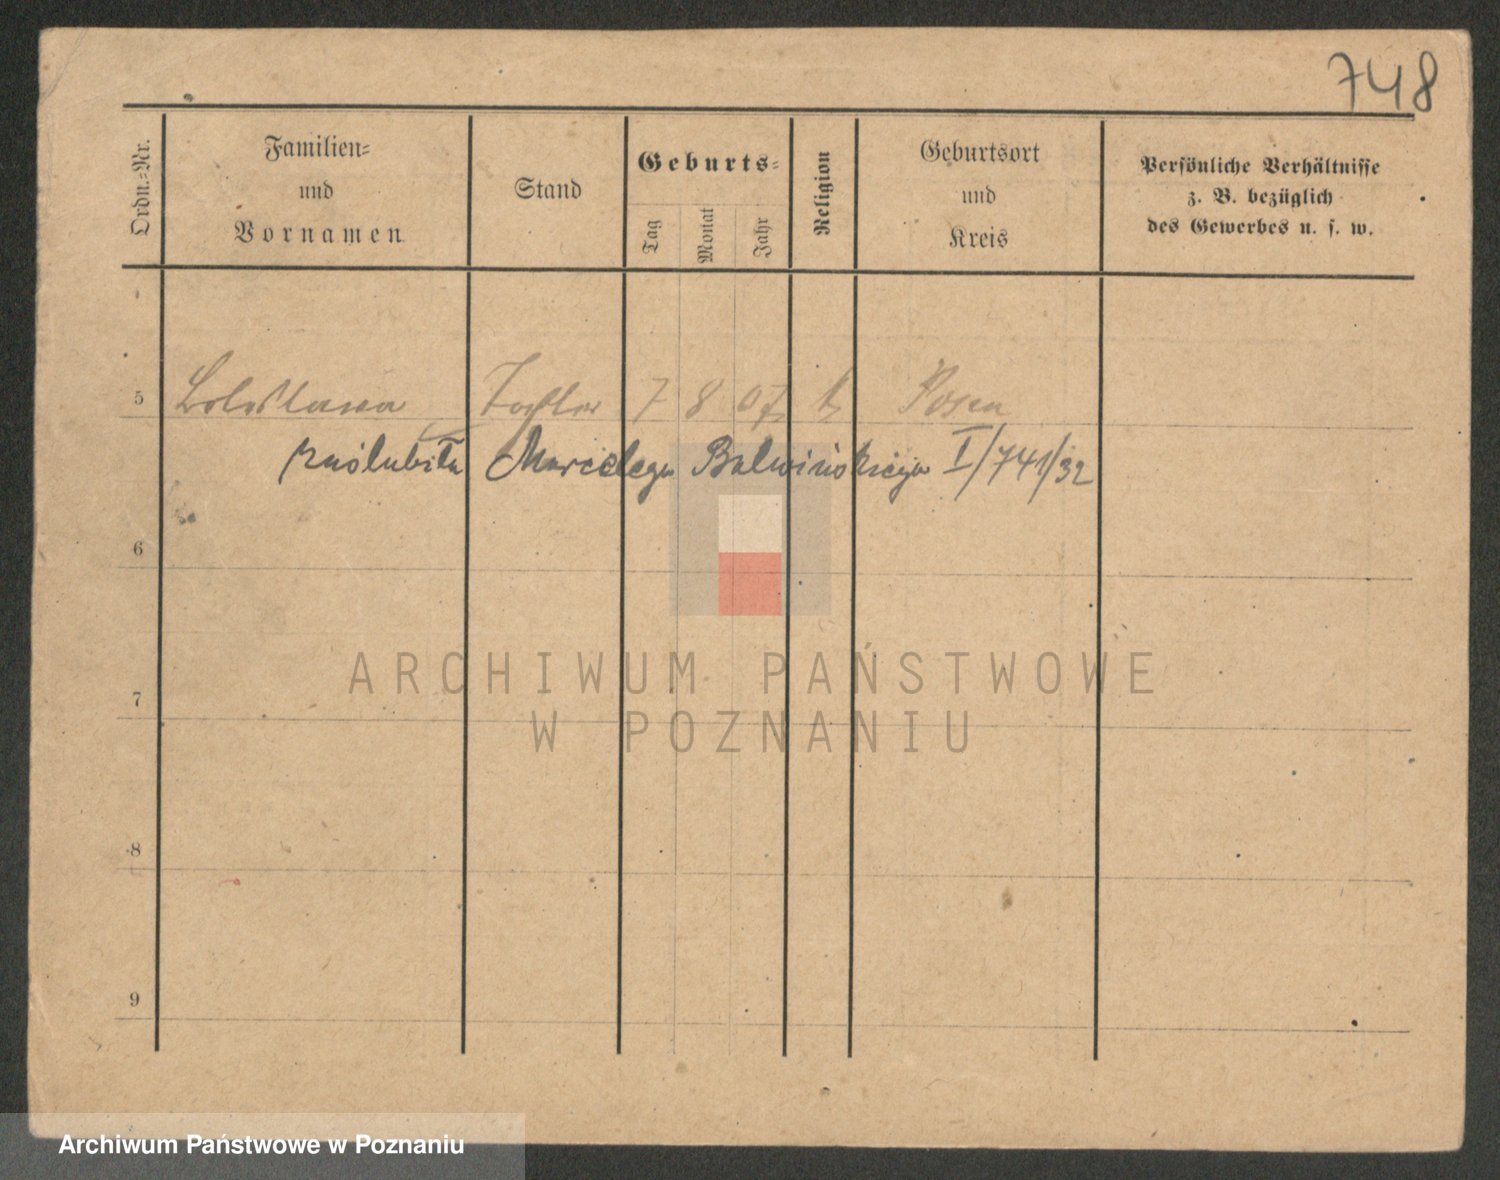 748
Ordn.=Nr.
Familien=
und
Vornamen
Stand
Geburts=
Tag
Monat
Jahr
Religion
Geburtsort
und
Kreis
Persönliche Verhältnisse
z. B. bezüglich
des Gewerbes u. s. w.
5 Boleslawa Tochter 7 8 07 k Posen
zaślubiła Marcelego Balwińskiego I/741/32
6
7
8
9
ARCHIWUM PAŃSTWOWE
W POZNANIU
Archiwum Państwowe w Poznaniu